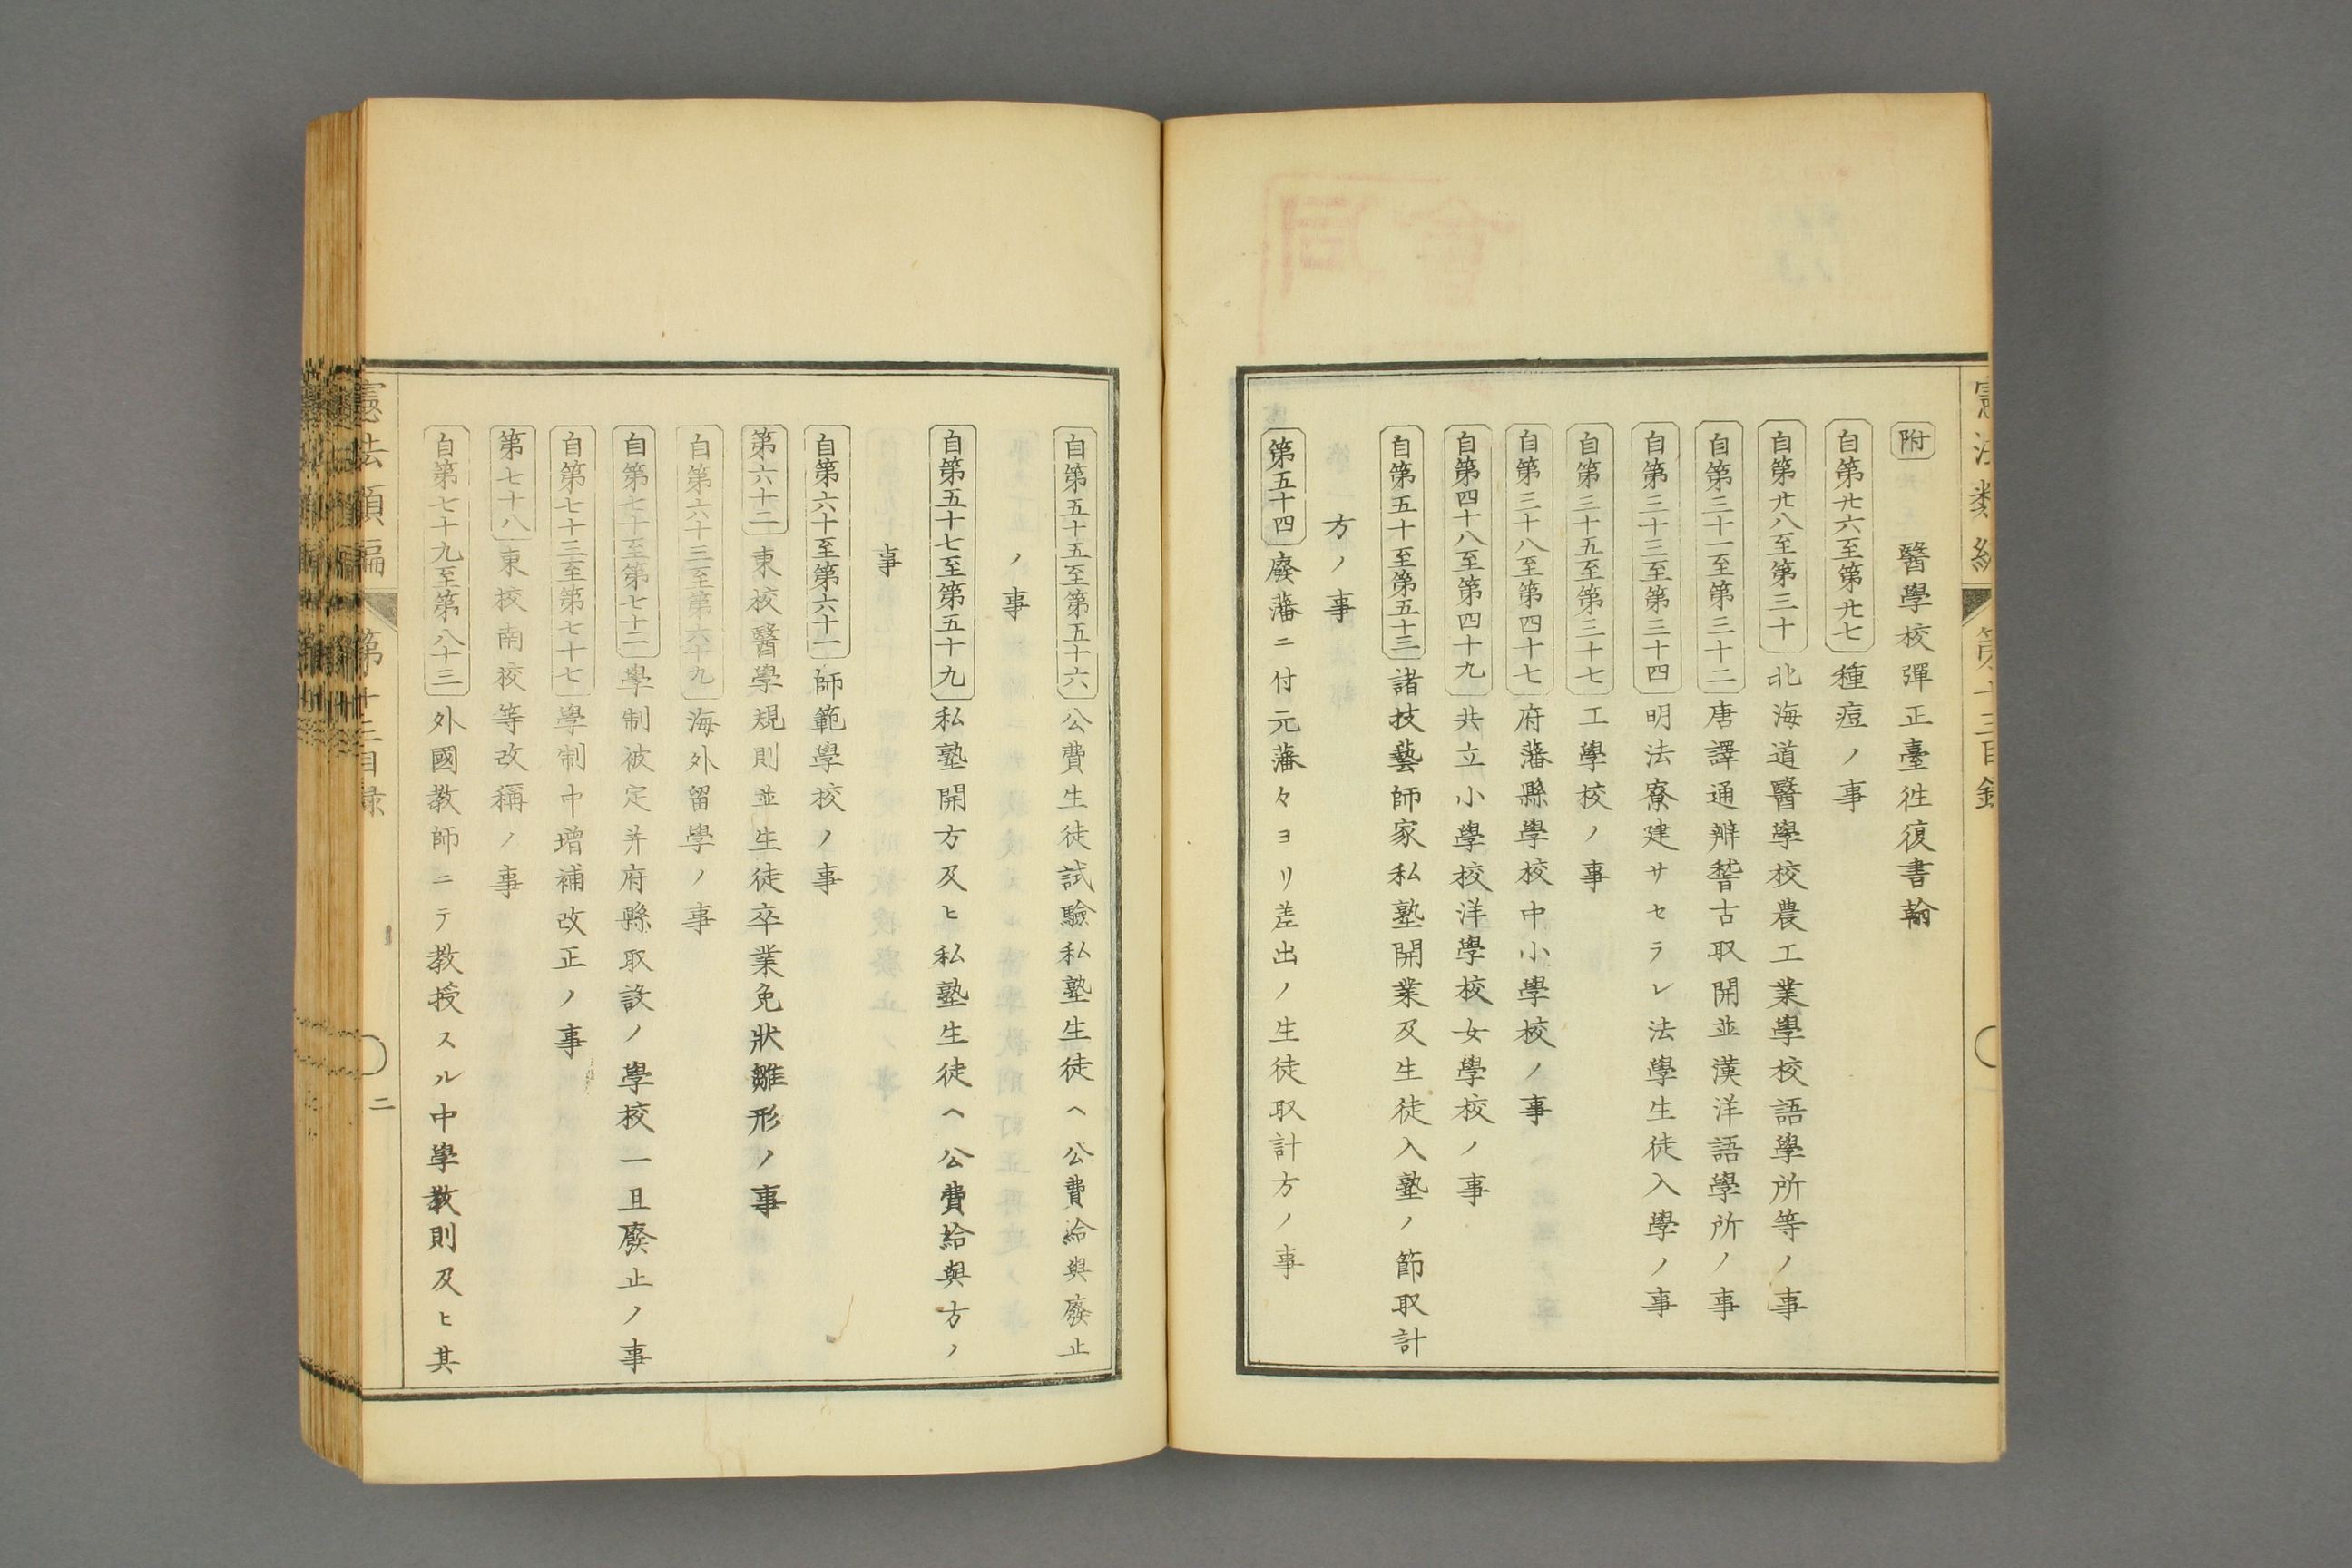 附
醫學校彈正臺徃復書翰
自第廿六至第廿七 種痘ノ事
自第廿八至第三十 北海道醫學校農工業學校語學所等ノ事
自第三十一至第三十二 唐譯通辨稽古取開並漢洋語學所ノ事
自第三十三至第三十四 明法寮建サセラレ法學生徒入學ノ事
自第三十五至第三十七 工學校ノ事
自第三十八至第四十七 府藩縣學校中小學校ノ事
自第四十八至第四十九 共立小學校洋學校女學校ノ事
自第五十至第五十三 諸技藝師家私塾開業及生徒入塾ノ節取計
方ノ事
第五十四 廢藩ニ付元藩々ヨリ差出ノ生徒取計方ノ事
自第五十五至第五十六 公費生徒試驗私塾生徒ヘ公費給與廢止
ノ事
自第五十七至第五十九 私塾開方及ヒ私塾生徒ヘ公費給與方ノ
事
自第六十至第六十一 師範學校ノ事
第六十二 東校醫學規則並生徒卒業免狀雛形ノ事
自第六十三至第六十九 海外留學ノ事
自第七十至第七十二 學制被定并府縣取設ノ學校一旦廢止ノ事
自第七十三至第七十七 學制中增補改正ノ事
第七十八 東校南校等改稱ノ事
自第七十九至第八十三 外國教師ニテ教授スル中學教則及ヒ其
憲法類編 第十三目録 二